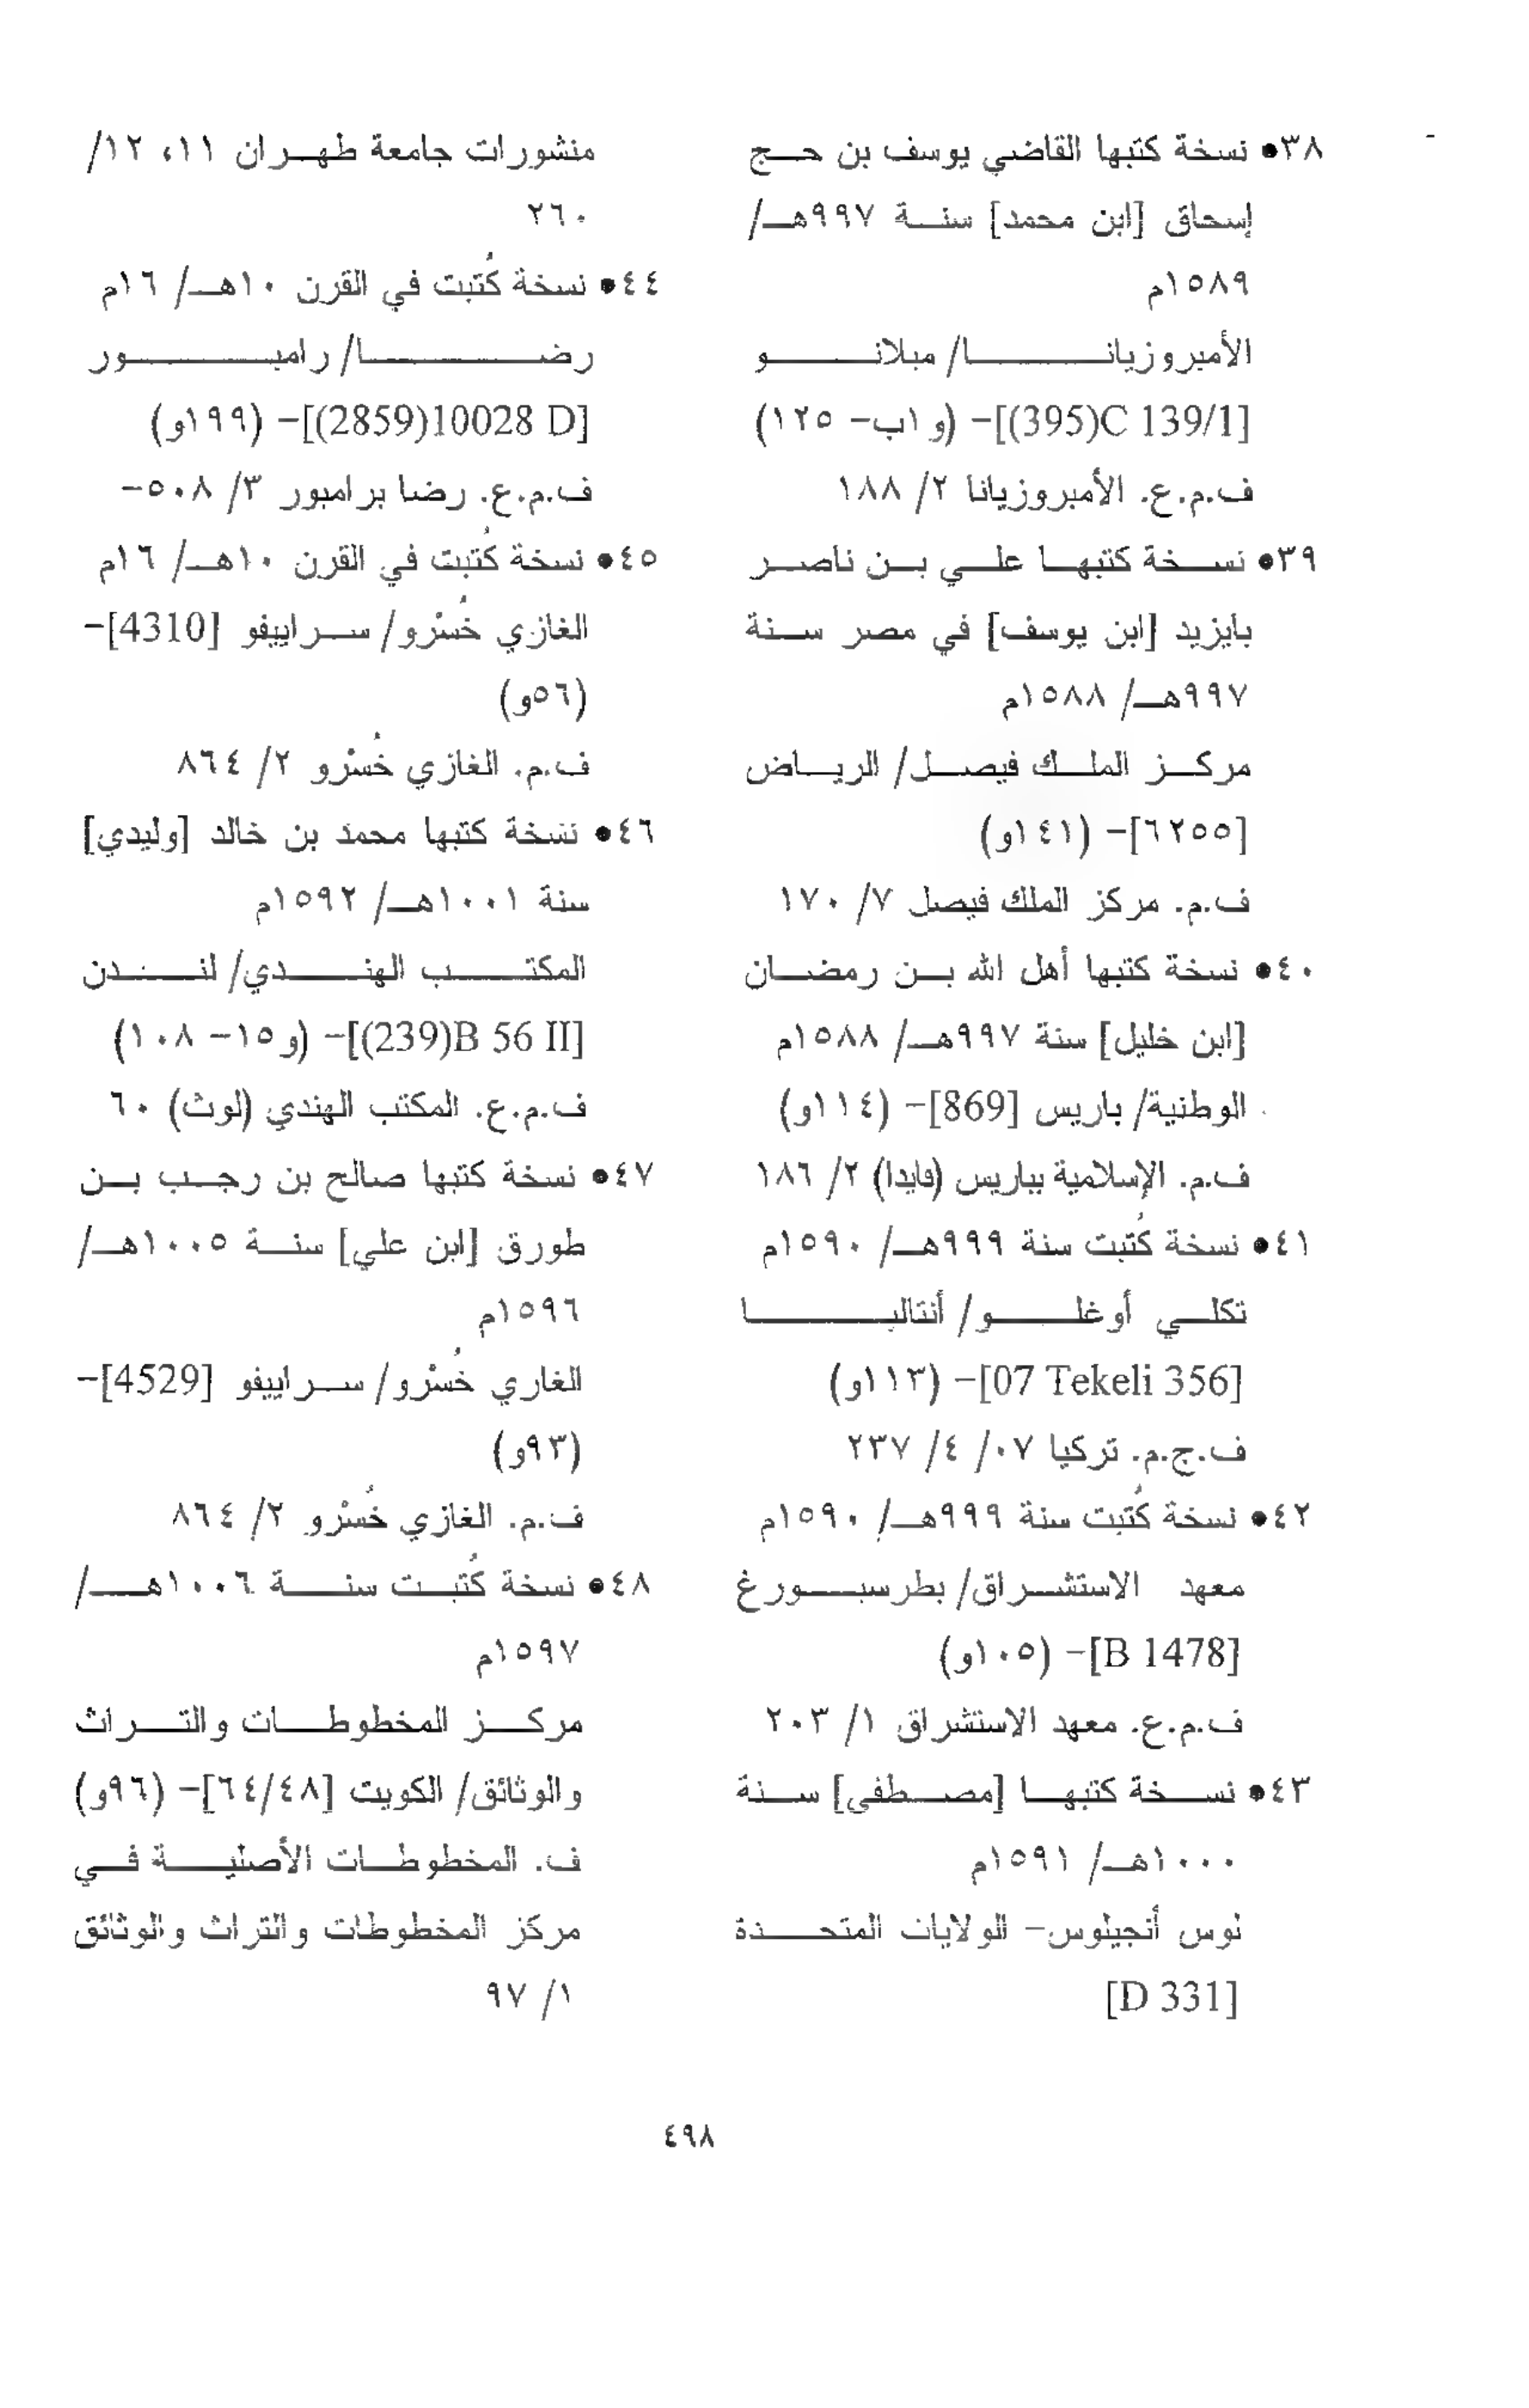 ٣٨• نسخة كتبها القاضي يوسف بن حج
إسحاق [ابن محمد] سنة ٩٩٧هـ/
١٥٨٩م
الأمبروزيانا/ ميلانو
[(395)C 139/1]- (و ١ب- ١٢٥)
ف.م.ع. الأمبروزيانا ٢/ ١٨٨
٣٩• نسخة كتبها علي بن ناصر
بايزيد [ابن يوسف] في مصر سنة
٩٩٧هـ/ ١٥٨٨م
مركز الملك فيصل/ الرياض
[٦٢٥٥]- (١٤١و)
ف.م. مركز الملك فيصل ٧/ ١٧٠
٤٠• نسخة كتبها أهل الله بن رمضان
[ابن خليل] سنة ٩٩٧هـ/ ١٥٨٨م
الوطنية/ باريس [869]- (١١٤و)
ف.م. الإسلامية بباريس (فايدا) ٢/ ١٨٦
٤١• نسخة كُتبت سنة ٩٩٩هـ/ ١٥٩٠م
تكلي أوغلو/ أنتاليا
[07 Tekeli 356]- (١١٣و)
ف.ج.م. تركيا ٠٧/ ٤/ ٢٣٧
٤٢• نسخة كُتبت سنة ٩٩٩هـ/ ١٥٩٠م
معهد الاستشراق/ بطرسبورغ
[B 1478]- (١٠٥و)
ف.م.ع. معهد الاستشراق ١/ ٢٠٣
٤٣• نسخة كتبها [مصطفى] سنة
١٠٠٠هـ/ ١٥٩١م
لوس أنجيلوس- الولايات المتحدة
[D 331]
منشورات جامعة طهران ١١، ١٢/
٢٦٠
٤٤• نسخة كُتبت في القرن ١٠هـ/ ١٦م
رضا/ رامبور
[(2859)10028 D]- (١٩٩و)
ف.م.ع. رضا برامبور ٣/ ٥٠٨-
٤٥• نسخة كُتبت في القرن ١٠هـ/ ١٦م
الغازي خُسْرو/ سراييفو [4310]-
(٥٦و)
ف.م. الغازي خُسْرو ٢/ ٨٦٤
٤٦• نسخة كتبها محمد بن خالد [وليدي]
سنة ١٠٠١هـ/ ١٥٩٢م
المكتب الهندي/ لندن
[(239)B 56 II]- (و١٥- ١٠٨)
ف.م.ع. المكتب الهندي (لوث) ٦٠
٤٧• نسخة كتبها صالح بن رجب بن
طورق [ابن علي] سنة ١٠٠٥هـ/
١٥٩٦م
الغاري خُسْرو/ سراييفو [4529]-
(٩٣و)
ف.م. الغازي خُسْرو ٢/ ٨٦٤
٤٨• نسخة كُتبت سنة ١٠٠٦هـ/
١٥٩٧م
مركز المخطوطات والتراث
والوثائق/ الكويت [٦٤/٤٨]- (٩٦و)
ف. المخطوطات الأصلية في
مركز المخطوطات والتراث والوثائق
١/ ٩٧
٤٩٨